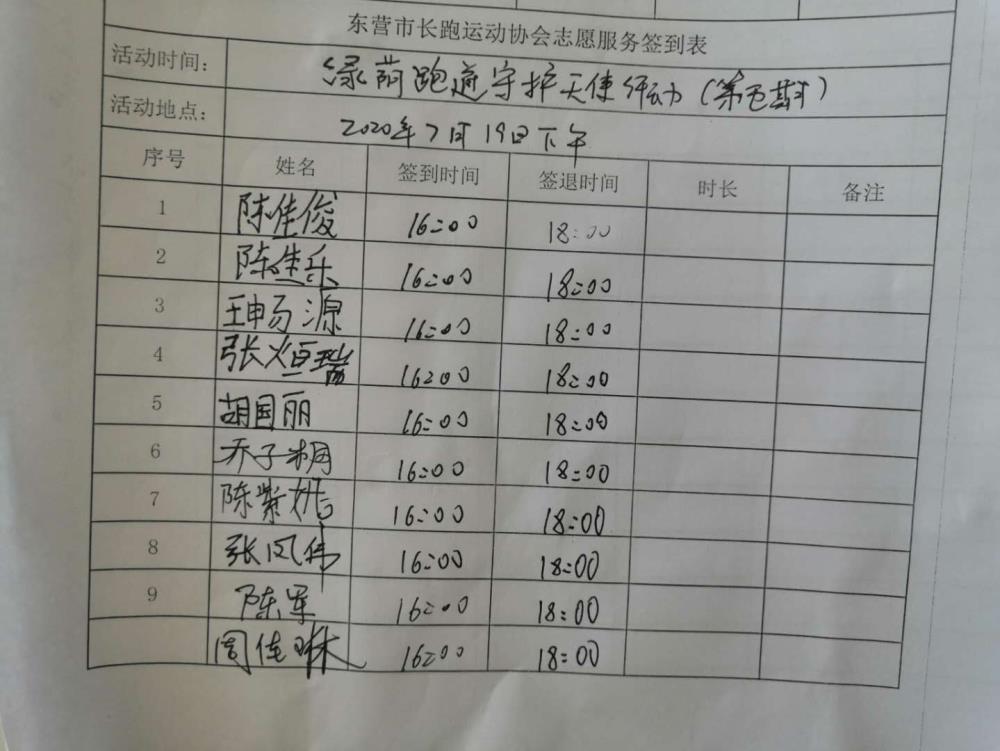 东营市长跑运动协会志愿服务签到表
活动时间： 绿荫跑道守护天使行动（第七期）
活动地点： 2020年7月19日下午
序号 姓名 签到时间 签退时间 时长 备注
1 陈佳俊 16:00 18:00
2 陈佳乐 16:00 18:00
3 王申易源 16:00 18:00
4 张烜瑞 16:00 18:00
5 胡国丽 16:00 18:00
6 乔子桐 16:00 18:00
7 陈紫 16:00 18:00
8 张风伟 16:00 18:00
9 陈军 16:00 18:00
周佳琳 16:00 18:00